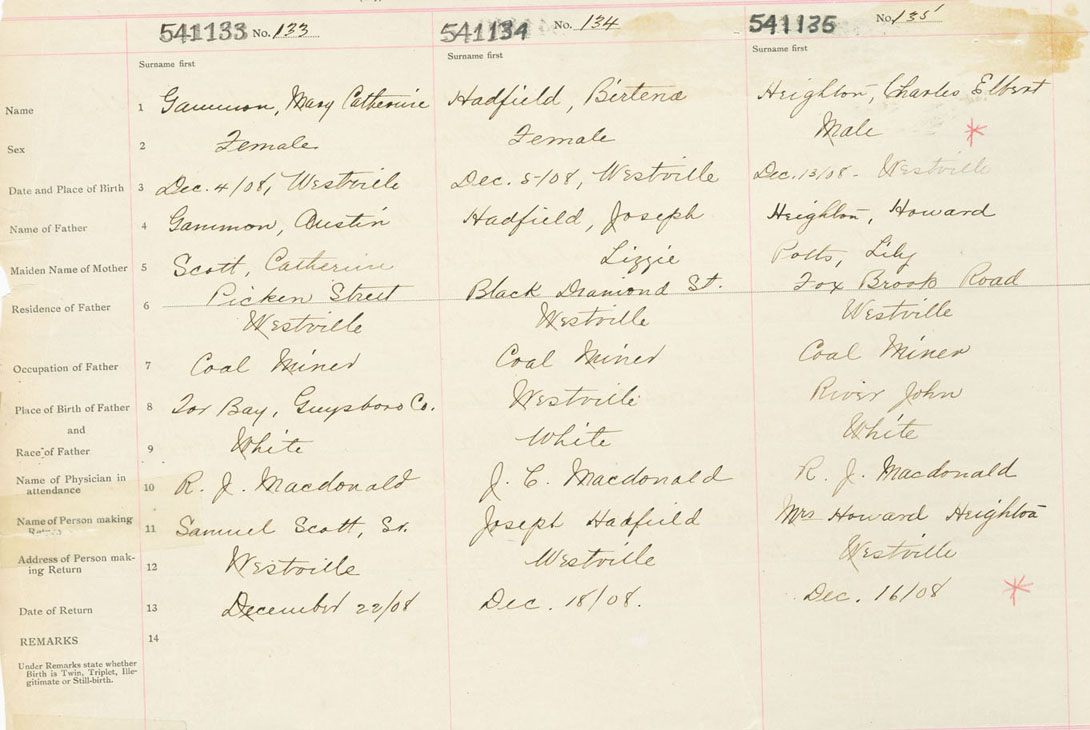 541133 No. 133
541134 No. 134
541135 No. 135
Surname first
Surname first
Surname first
Name 1 Gammon, Mary Catherine Hadfield, Birtena Heighton, Charles Elbert
Sex 2 Female Female Male
Date and Place of Birth 3 Dec. 4/08, Westville Dec. 5/08, Westville Dec. 13/08 - Westville
Name of Father 4 Gammon, Austin Hadfield, Joseph Heighton, Howard
Maiden Name of Mother 5 Scott, Catherine Lizzie Potts, Lily
Residence of Father 6 Picken Street Black Diamond St. Fox Brook Road
Westville Westville Westville
Occupation of Father 7 Coal Miner Coal Miner Coal Miner
Place of Birth of Father 8 Tor Bay, Guysboro Co. Westville River John
and
Race of Father 9 White White White
Name of Physician in
attendance 10 R. J. Macdonald J. C. Macdonald R. J. Macdonald
Name of Person making
Return 11 Samuel Scott, Sr. Joseph Hadfield Mrs Howard Heighton
Address of Person mak-
ing Return 12 Westville Westville Westville
Date of Return 13 December 22/08 Dec. 18/08. Dec. 16/08
REMARKS 14
Under Remarks state whether
Birth is Twin, Triplet, Ille-
gitimate or Still-birth.